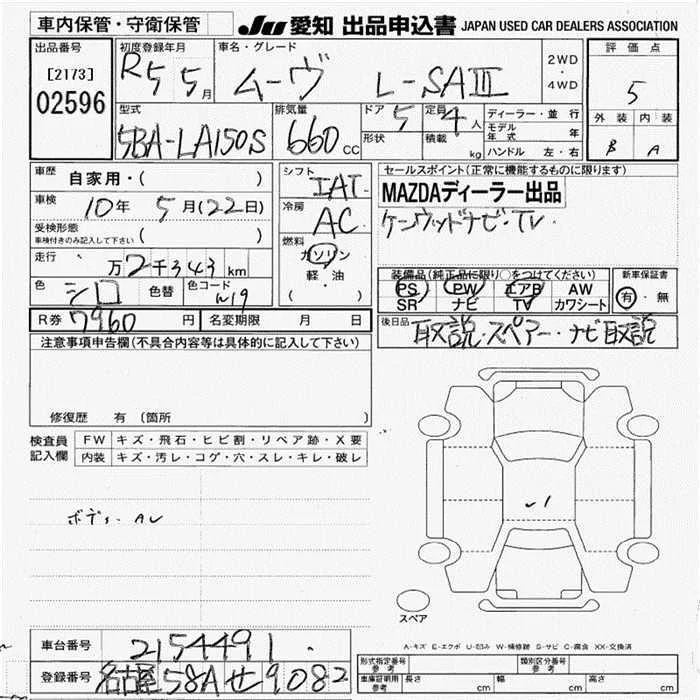 車内保管・守衛保管
JU 愛知 出品申込書 JAPAN USED CAR DEALERS ASSOCIATION
出品番号
[2173]
02596
初度登録年月
R5 5月
車名・グレード
ムーヴ L-SAⅢ
2WD
・
4WD
評価点
5
外装 内装
B A
型式
5BA-LA150S
排気量
660cc
ドア 5
形状
定員 4人
積載 kg
ディーラー・並行
モデル年式 年
ハンドル 左・右
車歴
自家用・( )
車検
10年 5月(22日)
受検形態
車検付きのみ記入して下さい ( )
走行
万2千343km
色
シロ
色替
色コード
W19
シフト
IAT
冷房
AC
燃料
ガソリン
軽・油
( )
セールスポイント(正常に機能するものに限ります)
MAZDAディーラー出品
ケンウッドナビ・TV
装備品(純正品に限り○をつけてください)
PS PW エアB AW
SR ナビ TV カワシート
新車保証書
有・無
R券 7960円
名変期限 月 日
後日品
取説・スペアー・ナビ取説
注意事項申告欄(不具合内容等は具体的に記入して下さい)
修復歴 有 (箇所
検査員
記入欄
FW キズ・飛石・ヒビ割・リペア跡・X要
内装 キズ・汚レ・コゲ・穴・スレ・キレ・破レ
ボデー AU
U1
スペア
A-キズ E-エクボ U-凹み W-補修跡 S-サビ C-腐食 XX-交換済
車台番号
2154491
登録番号
名古屋58Aせ9082
型式指定番号
参考
類別区分番号
参考
車庫証明用
参考
長さ cm
幅 cm
高さ cm